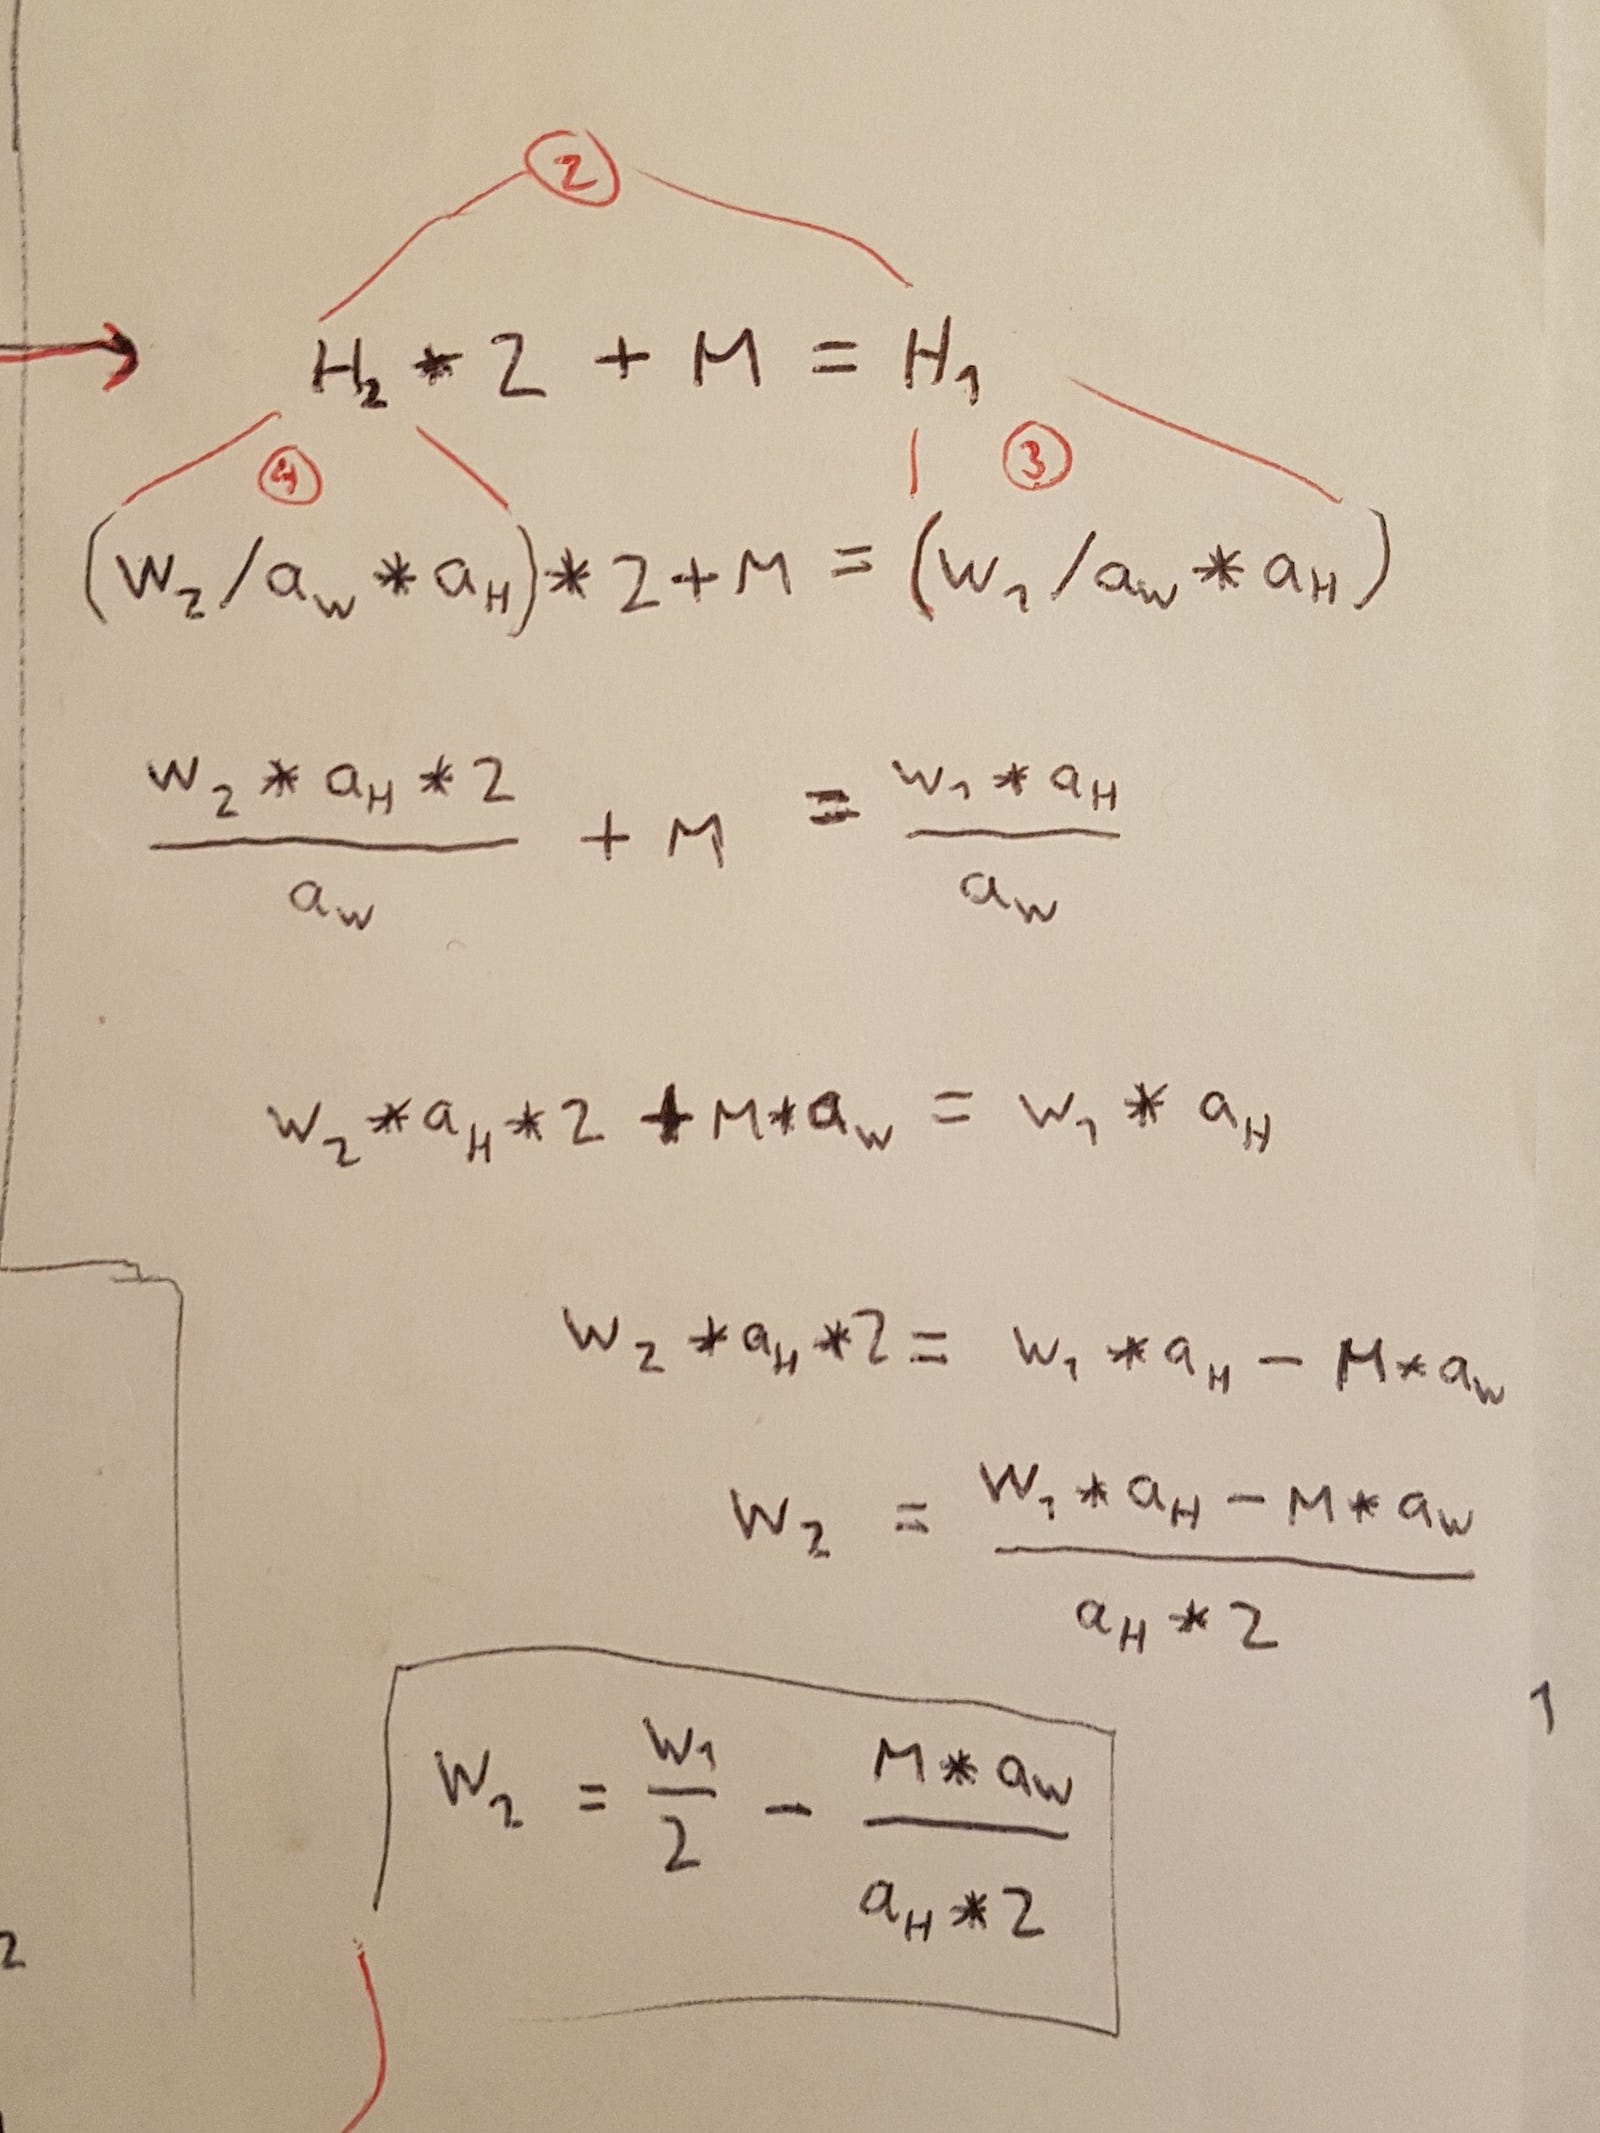 2
H₂ * 2 + M = H₁
4 3
(W₂ / a_W * a_H) * 2 + M = (W₁ / a_W * a_H)
W₂ * a_H * 2 / a_W + M = W₁ * a_H / a_W
W₂ * a_H * 2 + M * a_W = W₁ * a_H
W₂ * a_H * 2 = W₁ * a_H - M * a_W
W₂ = W₁ * a_H - M * a_W / a_H * 2
1
W₂ = W₁ / 2 - M * a_W / a_H * 2
2